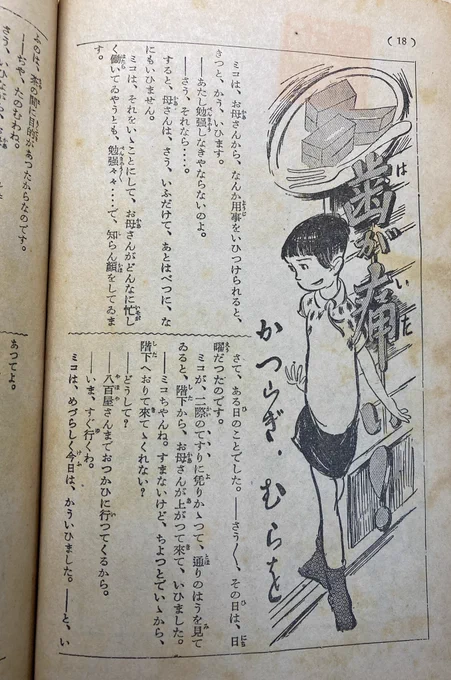 (18)
歯が痛!
かつらぎ・むらを
ミコは、お母さんから、なんか用事をいひつけられると、
きつと、かう、いひます。
――あたし勉強しなきやならないのよ。
――さう、それなら‥‥。
すると、母さんは、さう、いふだけで、あとはべつに、な
にもいひません。
ミコは、それをいゝことにして、お母さんがどんなに忙し
く働いてゐやうとも、勉強々々‥‥で、知らん顔をしてゐま
す。
さて、ある日のことでした。――さう〳〵、その日は、日
曜だつたのです。
ミコが、二階のてすりに凭りかゝつて、通りのはうを見て
ゐると、階下から、お母さんが上がつて來て、いひました。
――ミコちやんね。すまないけど、ちよつとでいゝから、
階下へおりて來てくれない?
――どうして?
――八百屋さんまでおつかひに行つてくるから。
――いま、すぐ行くわ。
ミコは、めづらしく今日は、かういひました。――と、い
目的があつたからなのです。
――ぢや、たのむわね。
あつてよ。